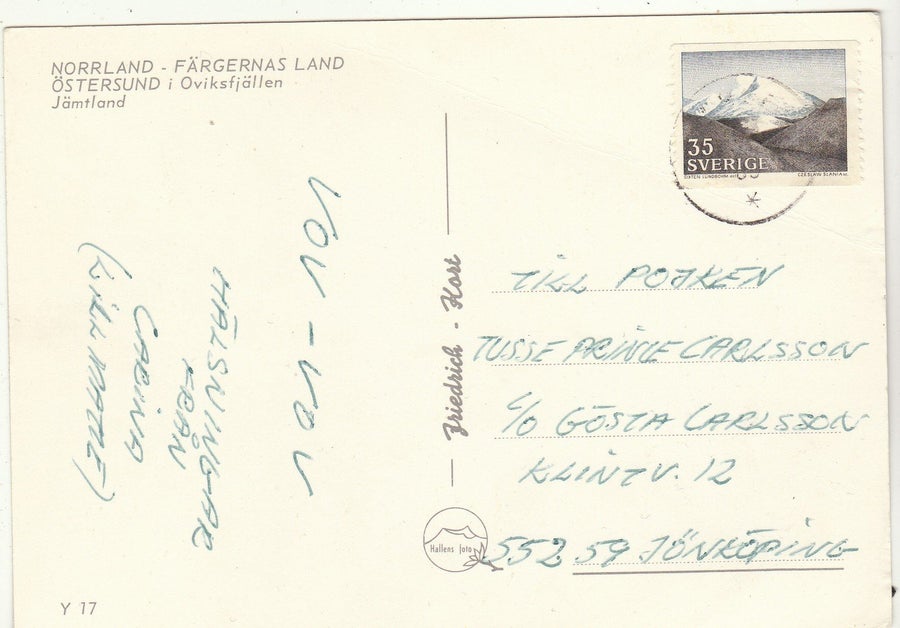 NORRLAND - FÄRGERNAS LAND
ÖSTERSUND i Oviksfjällen
Jämtland
VOV - VOV
HÄLSNINGAR
FRÅN
CABINA
(LILL MATTE)
Friedrich - Kort
Hallens foto
Y 17
35
SVERIGE
CZESLAW SLANIA sc.
TILL POJKEN
TUSSE PRINCE CARLSSON
c/o GÖSTA CARLSSON
KLINTV. 12
552 59 JÖNKÖPING